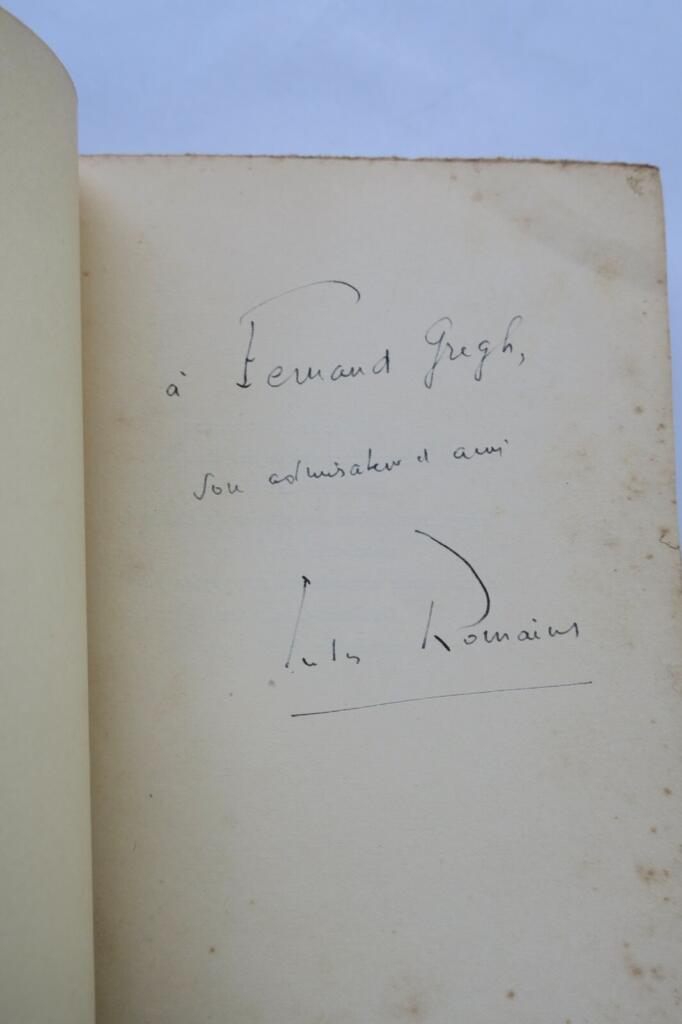 à Fernand Gregh,
son admirateur et ami
Jules Romains